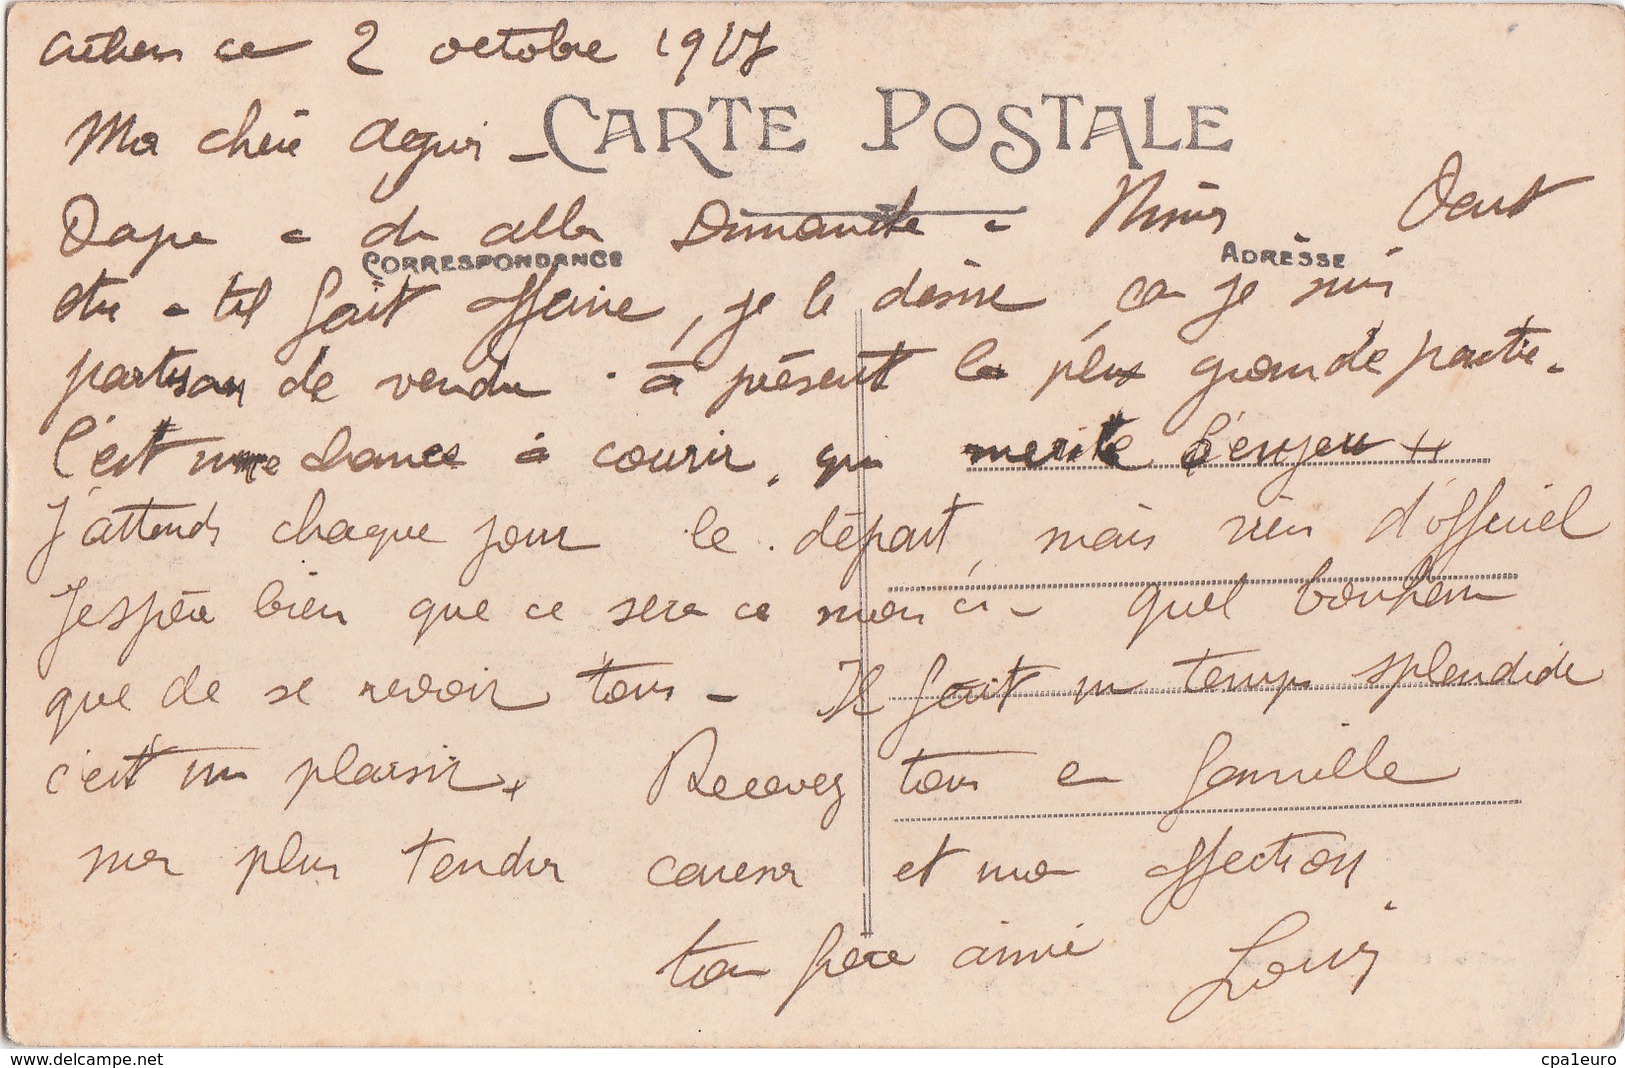 ce 2 octobre 1917
Ma chère
CARTE POSTALE
Papa a dû aller Dimanche à Nimes
CORRESPONDANCE
ADRESSE
a-t-il fait affaire, je le désire car je suis
partisan de vendre à présent la plus grande partie.
C'est une chance à courir, qui merite l'enjeu
J'attends chaque jour le départ, mais rien d'officiel
J'espère bien que ce sera ce mois ci - quel bonheur
que de se revoir tous - Il fait un temps splendide
c'est un plaisir Recevez tous en famille
mes plus tendres caresses et mon affection
ton frère aimé Louis
cpa1euro
www.delcampe.net